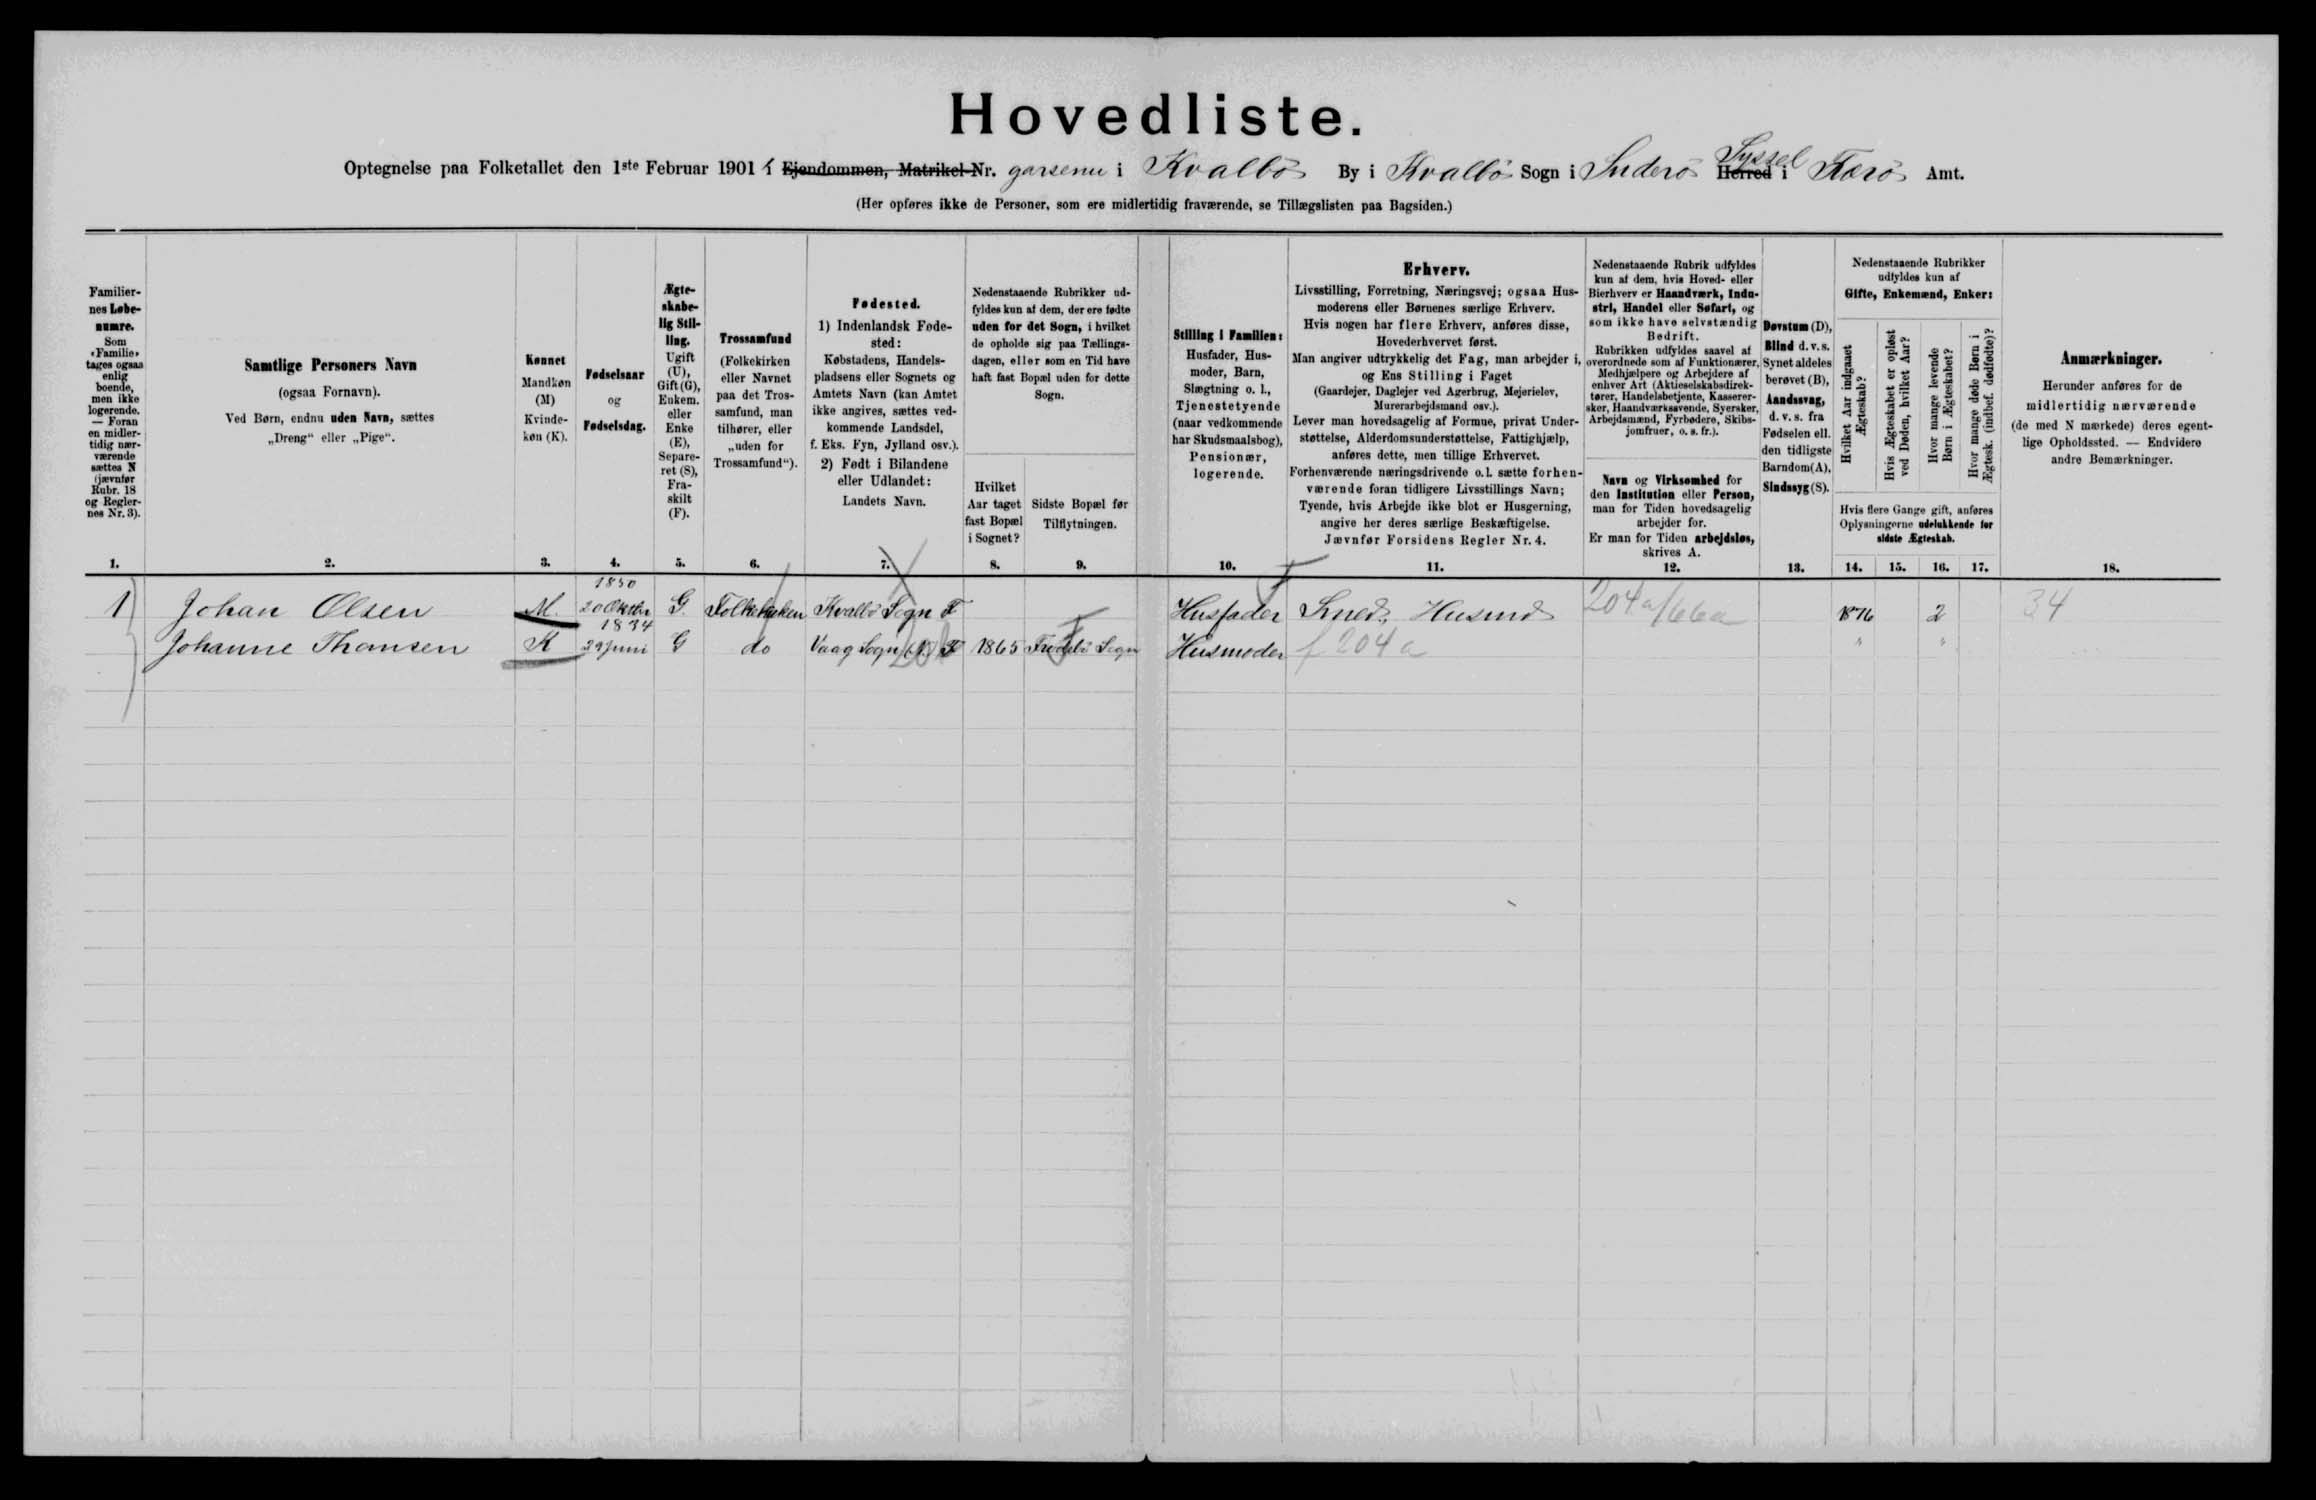 Hovedliste.
Optegnelse paa Folketallet den 1ste Februar 1901 i Ejendommen, Matrikel-Nr. garsenni i Kvalbø By i Kvalbø Sogn i Suderø Herred Syssel i Færø Amt.
(Her opføres ikke de Personer, som ere midlertidig fraværende, se Tillægslisten paa Bagsiden.)
Familier-
nes Løbe-
numre.
Som
«Familie»
tages ogsaa
enlig
boende,
men ikke
logerende.
— Foran
en midler-
tidig nær-
værende
sættes N
(jævnfør
Rubr. 18
og Regler-
nes Nr. 3).
1.
Samtlige Personers Navn
(ogsaa Fornavn).
Ved Børn, endnu uden Navn, sættes
„Dreng“ eller „Pige“.
2.
Kønnet
Mandkøn
(M)
Kvinde-
køn (K).
3.
Fødselsaar
og
Fødselsdag.
4.
Ægte-
skabe-
lig Stil-
ling.
Ugift
(U),
Gift (G),
Enkem.
eller
Enke
(E),
Separe-
ret (S),
Fra-
skilt
(F).
5.
Trossamfund
(Folkekirken
eller Navnet
paa det Tros-
samfund, man
tilhører, eller
„uden for
Trossamfund“).
6.
Fødested.
1) Indenlandsk Føde-
sted:
Købstadens, Handels-
pladsens eller Sognets og
Amtets Navn (kan Amtet
ikke angives, sættes ved-
kommende Landsdel,
f. Eks. Fyn, Jylland osv.).
2) Født i Bilandene
eller Udlandet:
Landets Navn.
7.
Nedenstaaende Rubrikker ud-
fyldes kun af dem, der ere fødte
uden for det Sogn, i hvilket
de opholde sig paa Tællings-
dagen, eller som en Tid have
haft fast Bopæl uden for dette
Sogn.
Hvilket
Aar taget
fast Bopæl
i Sognet?
8.
Sidste Bopæl før
Tilflytningen.
9.
Stilling i Familien:
Husfader, Hus-
moder, Barn,
Slægtning o. l.,
Tjenestetyende
(naar vedkommende
har Skudsmaalsbog),
Pensionær,
logerende.
10.
Erhverv.
Livsstilling, Forretning, Næringsvej; ogsaa Hus-
moderens eller Børnenes særlige Erhverv.
Hvis nogen har flere Erhverv, anføres disse,
Hovederhvervet først.
Man angiver udtrykkelig det Fag, man arbejder i,
og Ens Stilling i Faget
(Gaardejer, Daglejer ved Agerbrug, Mejerielev,
Murerarbejdsmand osv.).
Lever man hovedsagelig af Formue, privat Under-
støttelse, Alderdomsunderstøttelse, Fattighjælp,
anføres dette, men tillige Erhvervet.
Forhenværende næringsdrivende o.l. sætte forhen-
værende foran tidligere Livsstillings Navn;
Tyende, hvis Arbejde ikke blot er Husgerning,
angive her deres særlige Beskæftigelse.
Jævnfør Forsidens Regler Nr. 4.
11.
Nedenstaaende Rubrik udfyldes
kun af dem, hvis Hoved- eller
Bierhverv er Haandværk, Indu-
stri, Handel eller Søfart, og
som ikke have selvstændig
Bedrift.
Rubrikken udfyldes saavel af
overordnede som af Funktionærer,
Medhjælpere og Arbejdere af
enhver Art (Aktieselskabsdirek-
tører, Handelsbetjente, Kasserer-
sker, Haandværkssvende, Syersker,
Arbejdsmænd, Fyrbødere, Skibs-
jomfruer, o. s. fr.).
Navn og Virksomhed for
den Institution eller Person,
man for Tiden hovedsagelig
arbejder for.
Er man for Tiden arbejdsløs,
skrives A.
12.
Døvstum (D),
Blind d. v. s.
Synet aldeles
berøvet (B),
Aandssvag,
d. v. s. fra
Fødselen ell.
den tidligste
Barndom (A),
Sindssyg (S).
13.
Nedenstaaende Rubrikker
udfyldes kun af
Gifte, Enkemænd, Enker:
Hvilket Aar indgaaet
Ægteskab?
Hvis Ægteskabet er opløst
ved Døden, hvilket Aar?
Hvor mange levende
Børn i Ægteskabet?
Hvor mange døde Børn i
Ægtesk. (indbef. dødfødte)?
Hvis flere Gange gift, anføres
Oplysningerne udelukkende for
sidste Ægteskab.
14. 15. 16. 17.
Anmærkninger.
Herunder anføres for de
midlertidig nærværende
(de med N mærkede) deres egent-
lige Opholdssted. — Endvidere
andre Bemærkninger.
18.
1 Johan Olsen M. 1850 20 Oktbr G. Folkekirken Kvalbø Sogn F Husfader Smed, Husmd 204a/66a 1876 2 34
Johanne Thomsen K 1834 29 Juni G do Vaag Sogn F 1865 Frodebø Sogn Husmoder f 204 a " "